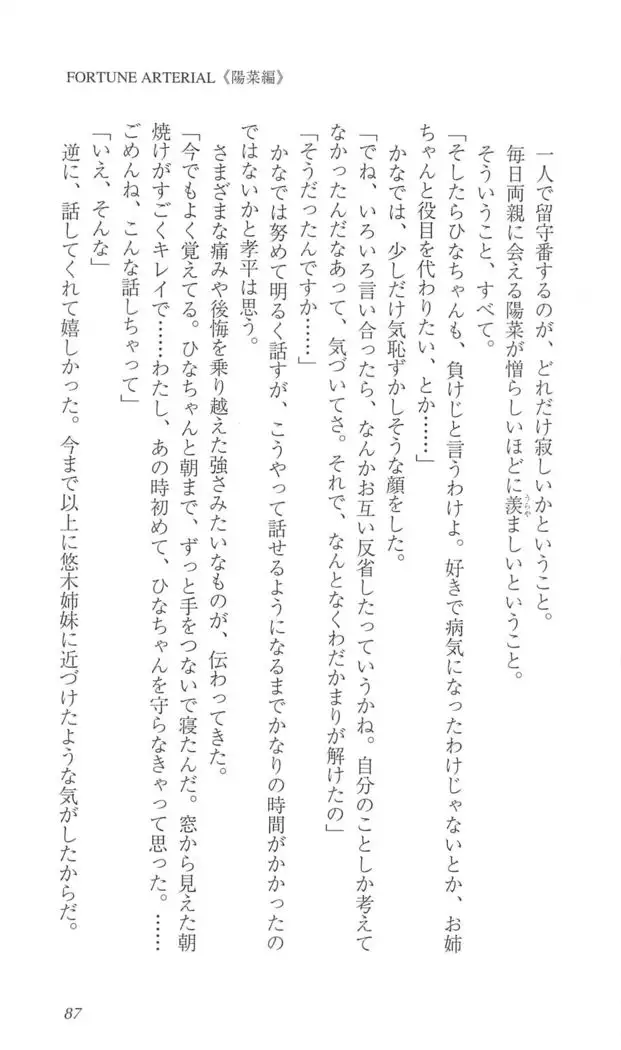 FORTUNE ARTERIAL《陽菜編》
一人で留守番するのが、どれだけ寂しいかということ。
毎日両親に会える陽菜が憎らしいほどに羨ましいということ。
うらや
そういうこと、すべて。
「そしたらひなちゃんも、負けじと言うわけよ。好きで病気になったわけじゃないとか、お姉
ちゃんと役目を代わりたい、とか……」
かなでは、少しだけ気恥ずかしそうな顔をした。
「でね、いろいろ言い合ったら、なんかお互い反省したっていうかね。自分のことしか考えて
なかったんだなあって、気づいてさ。それで、なんとなくわだかまりが解けたの」
「そうだったんですか……」
かなでは努めて明るく話すが、こうやって話せるようになるまでかなりの時間がかかったの
ではないかと孝平は思う。
さまざまな痛みや後悔を乗り越えた強さみたいなものが、伝わってきた。
「今でもよく覚えてる。ひなちゃんと朝まで、ずっと手をつないで寝たんだ。窓から見えた朝
焼けがすごくキレイで……わたし、あの時初めて、ひなちゃんを守らなきゃって思った。……
ごめんね、こんな話しちゃって」
「いえ、そんな」
逆に、話してくれて嬉しかった。今まで以上に悠木姉妹に近づけたような気がしたからだ。
87